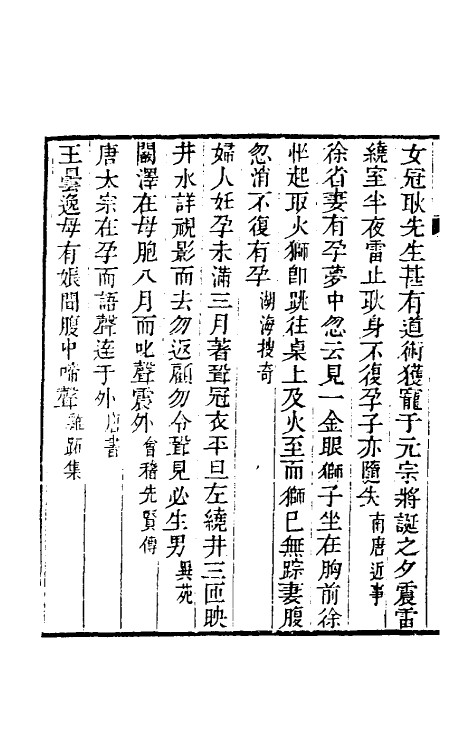 女冠耿先生甚有道術獲寵于元宗將誕之夕震雷
繞室半夜雷止耿身不復孕子亦隨失南唐近事
徐省妻有孕夢中忽云見一金眼獅子坐在胸前徐
恠起取火獅卽跳往桌上及火至而獅已無踪妻腹
忽消不復有孕湖海搜奇
婦人妊孕未滿三月著壻冠衣平旦左繞井三匝映
井水詳視影而去勿返顧勿令壻見必生男異苑
闞澤在母胞八月而叱聲震外會稽先賢傳
唐太宗在孕而語聲達于外唐書
王曇逸母有娠聞腹中啼聲雞跖集